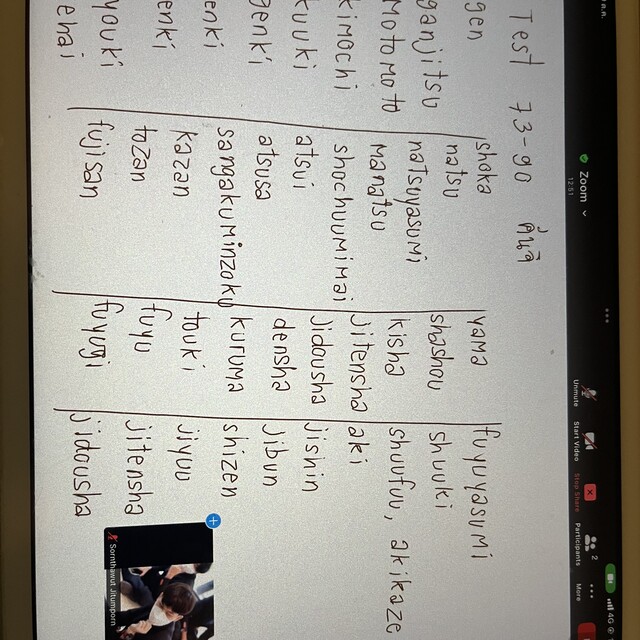 4G
Zoom
12:51
Unmute
Start Video
Stop Share
Participants
2
More
Test 73-90 คันจิ
gen
ganjitsu
motomoto
kimochi
kuuki
genki
enki
enki
youki
ehai
shoka
natsu
natsuyasumi
manatsu
shochuumimai
atsui
atsusa
sangakuminzoku
kazan
tozan
fujisan
yama
shashou
kisha
jitensha
jidousha
densha
kuruma
touki
fuyu
fuyugi
fuyuyasumi
shuuki
shuufuu, akikaze
aki
jishin
jibun
shizen
jiyuu
jitensha
jidousha
Sornthawut Jitumporn